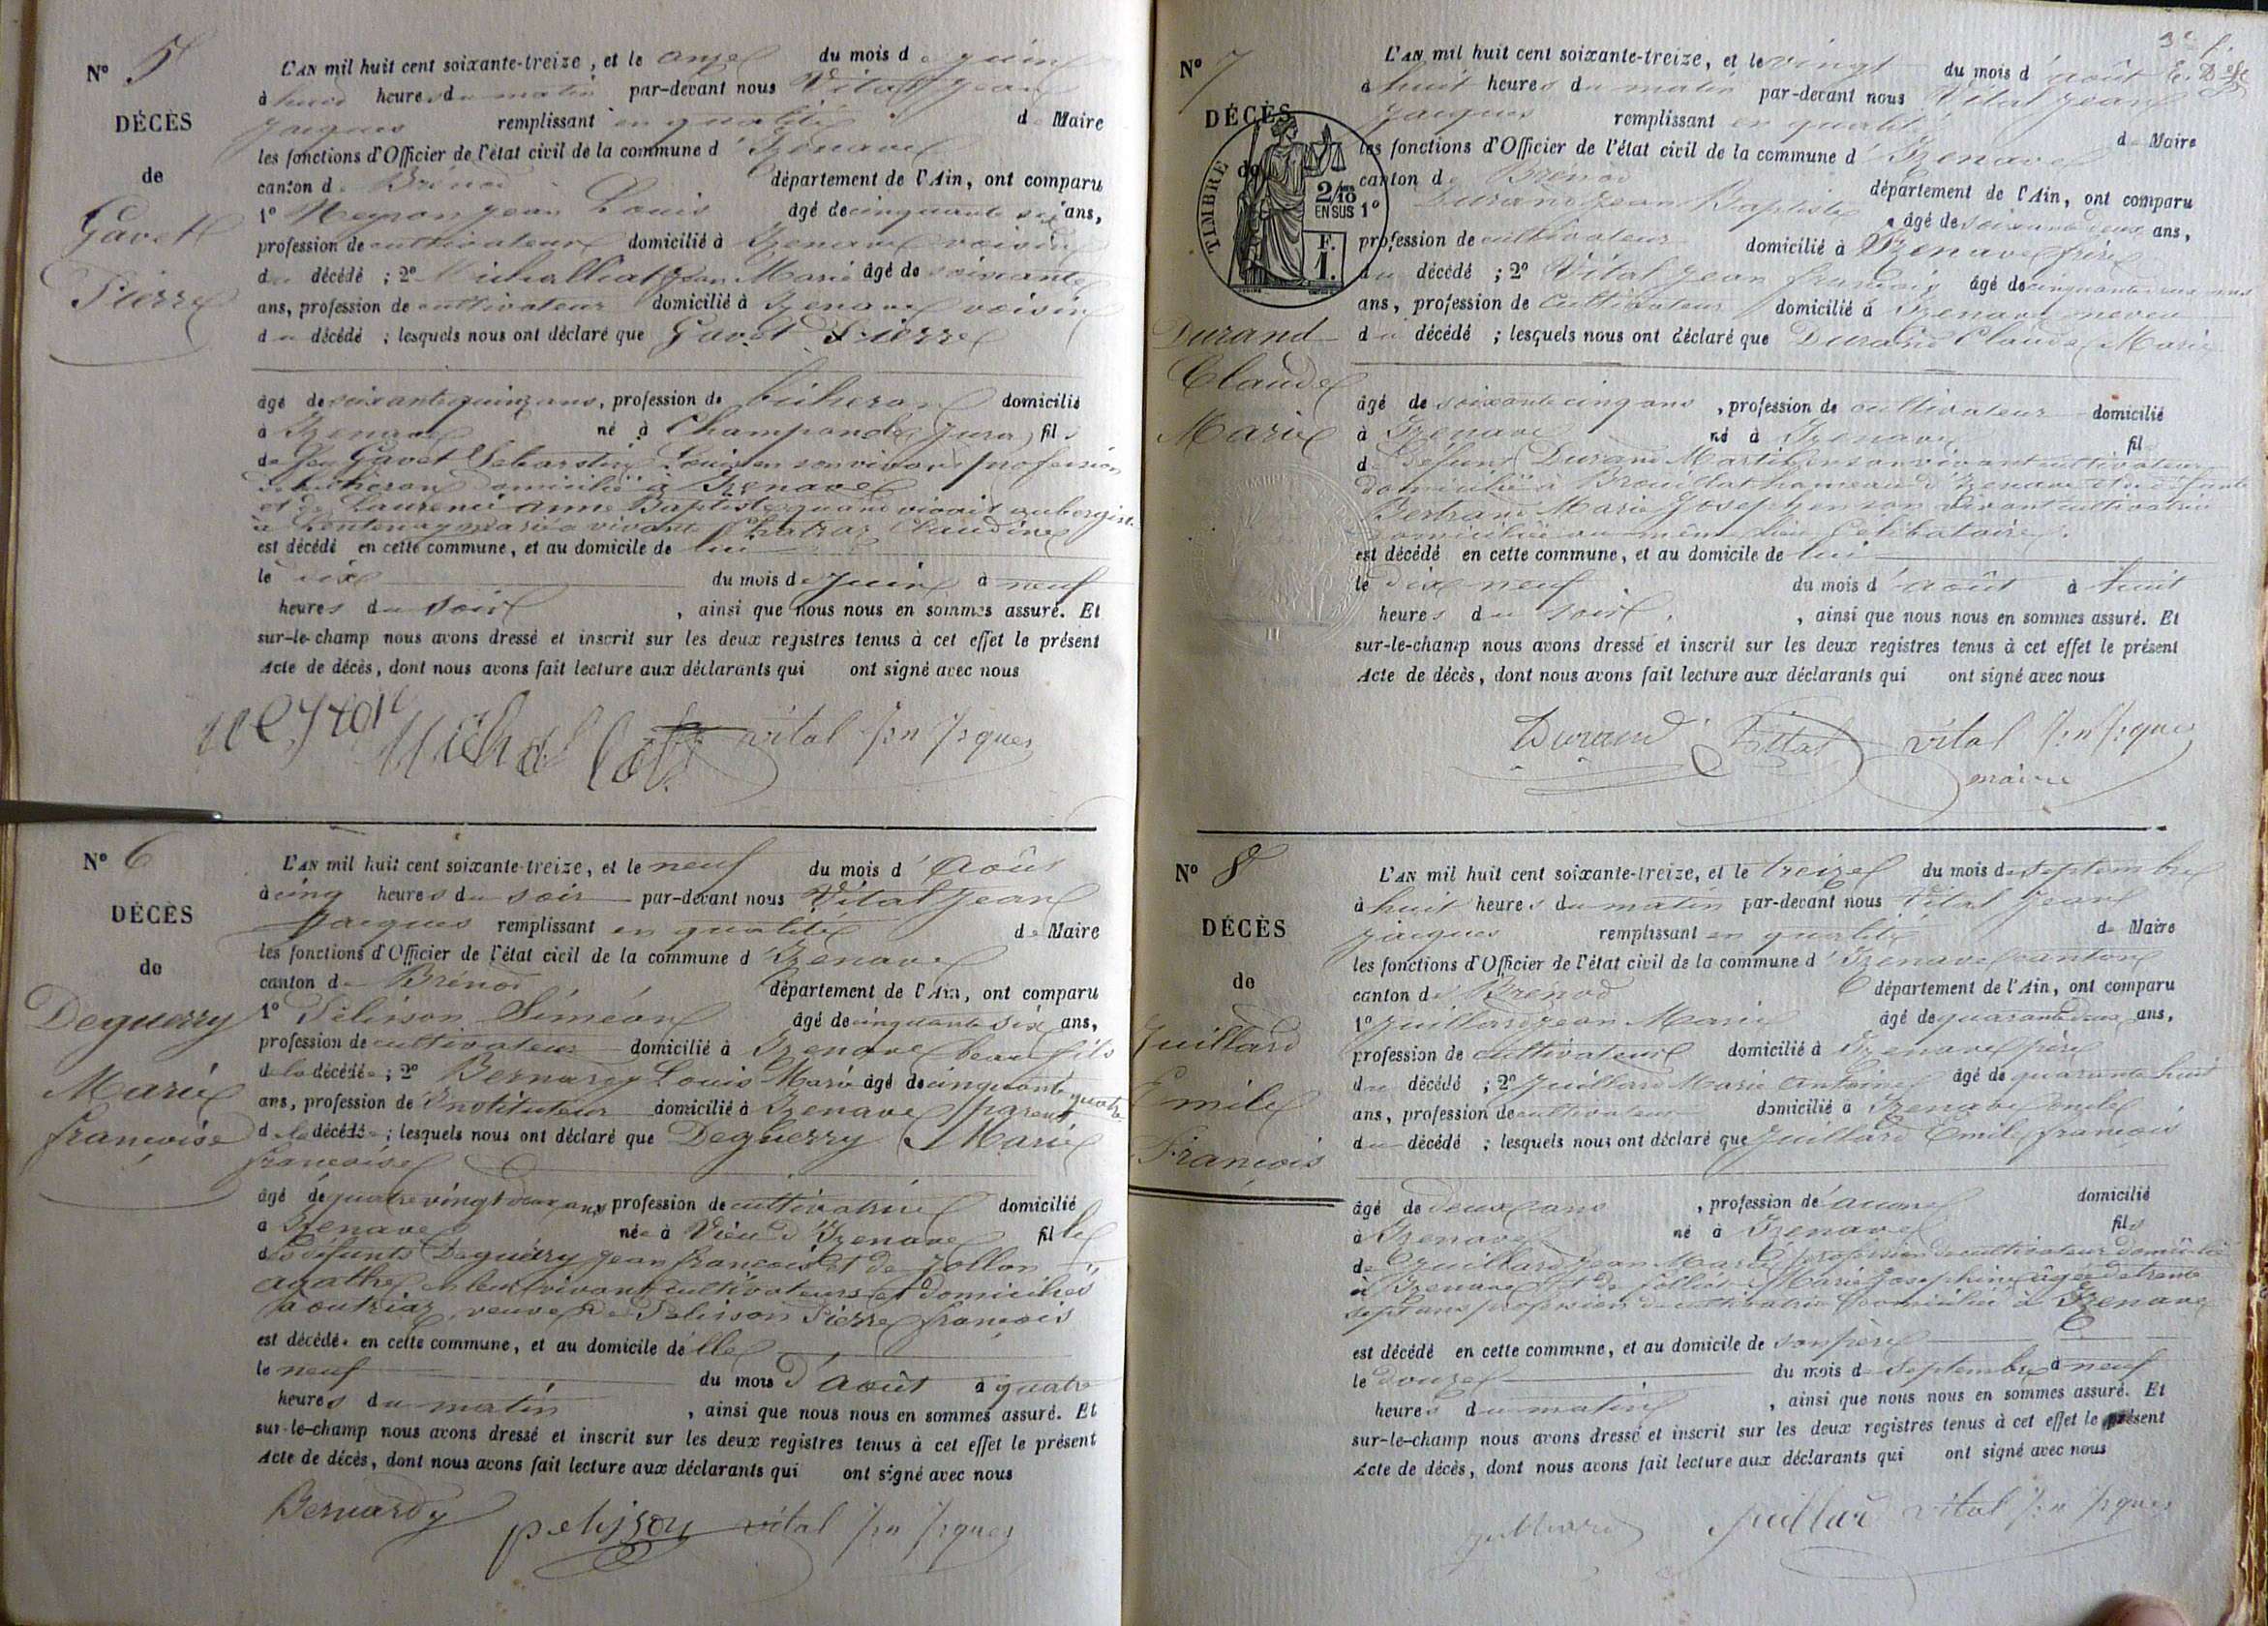 N° 5
DÉCÈS
de
Gavet
Pierre
L'AN mil huit cent soixante-treize, et le onze du mois de juin
à huit heures du matin par-devant nous Vital Jean
Jacques remplissant en qualité de Maire
les fonctions d'Officier de l'état civil de la commune d'Izenave
canton de Brénod département de l'Ain, ont comparu
1° Meyron Jean Louis âgé de cinquante six ans,
profession de cultivateur domicilié à Izenave voisin
du décédé ; 2° Jean Marie âgé de soixante
ans, profession de cultivateur domicilié à Izenave voisin
du décédé ; lesquels nous ont déclaré que Gavet Pierre
âgé de soixante quinz ans, profession de bûcheron domicilié
à Izenave né à (Jura) fils
de feu Gavet Sebastien Louis en son vivant profession
de bûcheron domicilié à Izenave
et de Laurence Anne Baptiste quand vivait aubergiste
à marié à vivante Claudine
est décédé en cette commune, et au domicile de lui
le dix du mois de Juin à neuf
heures du soir, ainsi que nous nous en sommes assuré. Et
sur-le-champ nous avons dressé et inscrit sur les deux registres tenus à cet effet le présent
Acte de décès, dont nous avons fait lecture aux déclarants qui ont signé avec nous
vital Jn Jques
N° 6
DÉCÈS
de
Deguerry
Marie
françoise
L'AN mil huit cent soixante-treize, et le neuf du mois d'Août
à cinq heures du soir par-devant nous Vital Jean
Jacques remplissant en qualité de Maire
les fonctions d'Officier de l'état civil de la commune d'Izenave
canton de Brénod département de l'Ain, ont comparu
1° Pelisson Siméon âgé de cinquante six ans,
profession de cultivateur domicilié à Izenave beau fils
de la décédée ; 2° Bernardy Louis Marie âgé de cinquante quatre
ans, profession de Instituteur domicilié à Izenave parent
de la décédée ; lesquels nous ont déclaré que Deguerry Marie
françoise
âgé de quatre vingt deux ans, profession de cultivatrice domicilié
à Izenave née à Vieu d'Izenave fille
des défunts Deguerry Jean françois et de Jollon
agathe en leur vivant cultivateurs et domiciliés
à outriaz, veuve de Pelisson Pierre françois
est décédée en cette commune, et au domicile d'elle
le neuf du mois d'Août à quatre
heures du matin, ainsi que nous nous en sommes assuré. Et
sur-le-champ nous avons dressé et inscrit sur les deux registres tenus à cet effet le présent
Acte de décès, dont nous avons fait lecture aux déclarants qui ont signé avec nous
Bernardy pelisson vital Jn Jques
N° 7
DÉCÈS
de
TIMBRE
2/10 EN SUS
F. 1.
Durand
Claude
Marie
L'AN mil huit cent soixante-treize, et le vingt du mois d'août
à huit heures du matin par-devant nous Vital Jean
Jacques remplissant en qualité de Maire
les fonctions d'Officier de l'état civil de la commune d'Izenave
canton de Brénod département de l'Ain, ont comparu
1° Durand Jean Baptiste âgé de soixante deux ans,
profession de cultivateur domicilié à Izenave frère
du décédé ; 2° Vital Jean françois âgé de cinquante
ans, profession de Cultivateur domicilié à Izenave neveu
du décédé ; lesquels nous ont déclaré que Durand Claude Marie
âgé de soixante cinq ans, profession de cultivateur domicilié
à Izenave né à Izenave fil
de défunt Durand en son vivant cultivateur
domicilié à hameau d'Izenave et de défunte
Marie Joseph en son vivant cultivatrice
domiciliée au même lieu Celibataire.
est décédé en cette commune, et au domicile de lui
le dix neuf du mois d'août à huit
heures du soir, ainsi que nous nous en sommes assuré. Et
sur-le-champ nous avons dressé et inscrit sur les deux registres tenus à cet effet le présent
Acte de décès, dont nous avons fait lecture aux déclarants qui ont signé avec nous
Durand Vital vital Jn Jques
maire
N° 8
DÉCÈS
de
Juillard
Emile
François
L'AN mil huit cent soixante-treize, et le treize du mois de septembre
à huit heures du matin par-devant nous Vital Jean
Jacques remplissant en qualité de Maire
les fonctions d'Officier de l'état civil de la commune d'Izenave canton
canton de Brénod département de l'Ain, ont comparu
1° Juillard Jean Marie âgé de quarante deux ans,
profession de cultivateur domicilié à Izenave père
du décédé ; 2° Juillard Marie Antoine âgé de quarante huit
ans, profession de cultivateur domicilié à Izenave oncle
du décédé ; lesquels nous ont déclaré que Juillard Emile françois
âgé de deux ans, profession de aucune domicilié
à Izenave né à Izenave fils
de Juillard Jean Marie profession de cultivateur domicilié
à Izenave et de Marie Josephine âgée de trente
sept ans profession de cultivatrice domiciliée à Izenave
est décédé en cette commune, et au domicile de son père
le douze du mois de septembre à neuf
heures du matin, ainsi que nous nous en sommes assuré. Et
sur-le-champ nous avons dressé et inscrit sur les deux registres tenus à cet effet le présent
Acte de décès, dont nous avons fait lecture aux déclarants qui ont signé avec nous
juillard juillard vital Jn Jques